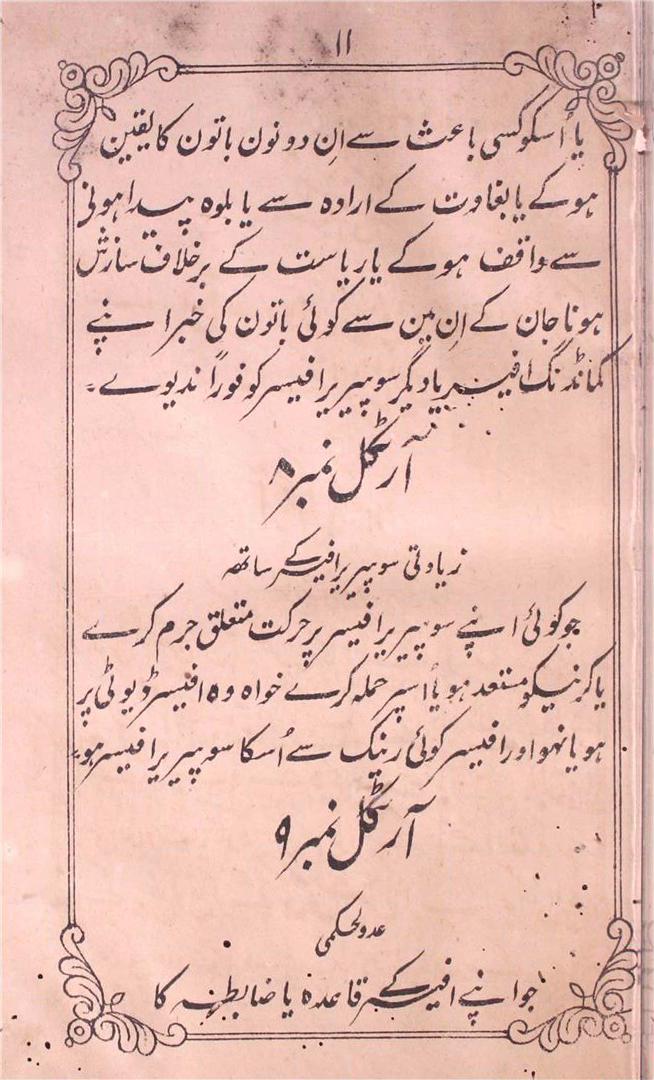 ۱۱
یا اُسکو کسی باعث سے اِن دونون باتون کا یقین
ہو کے یا بغاوت کے ارادہ سے یا بلوہ پیدا ہونی
سے واقف ہو کے یا ریاست کے برخلاف سازش
ہونا جان کے اِن مین سے کوئی باتون کی خبر اپنے
کمانڈنگ افیسر یا دیگر سوپیریر افیسر کو فوراً ندیوے۔
آرٹکل نمبر ۸
زیادتی سوپیریر افیسر کے ساتھہ
جو کوئی اپنے سوپیریر افیسر پر حرکت متعلق جرم کرے
یا کرنیکو مستعد ہو یا اُسپر حملہ کرے خواہ وہ افیسر ڈیوٹی پر
ہو یا نہو اور افیسر کوئی رینک سے اُسکا سوپیریر افیسر ہو۔
آرٹکل نمبر ۹
عدولحکمی
جو اپنے افیسر کے قاعدہ یا ضابطہ کا